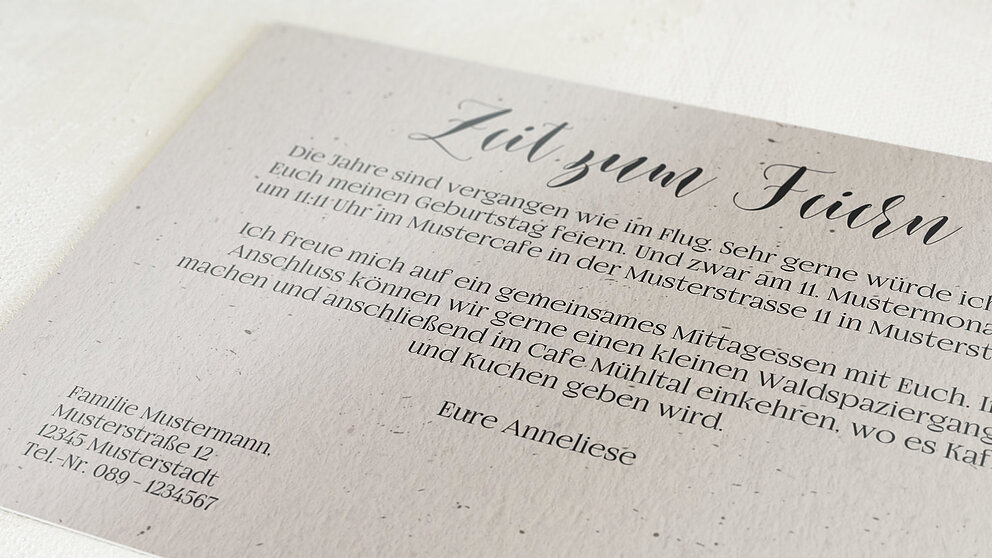 Zeit zum Feiern
Die Jahre sind vergangen wie im Flug. Sehr gerne würde ich
Euch meinen Geburtstag feiern. Und zwar am 11. Mustermona
um 11:11 Uhr im Mustercafe in der Musterstrasse 11 in Musterst
Ich freue mich auf ein gemeinsames Mittagessen mit Euch. I
Anschluss können wir gerne einen kleinen Waldspaziergang
machen und anschließend im Cafe Mühltal einkehren, wo es Kaf
und Kuchen geben wird.
Eure Anneliese
Familie Mustermann
Musterstraße 12
12345 Musterstadt
Tel.-Nr. 089 - 1234567